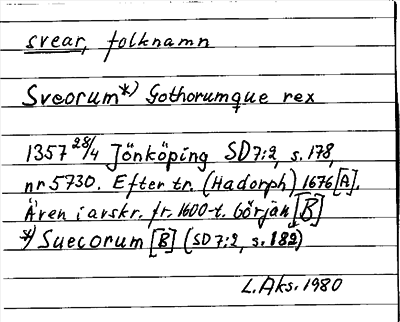 svear, folknamn
Sveorum*) Gothorumque rex
1357 28/4 Jönköping SD7:2, s. 178,
nr 5730. Efter tr. (Hadorph) 1676 [A].
Även i avskr. fr. 1600-t. början [B]
*) Suecorum [B] (SD 7:2, s. 182)
L. Aks. 1980